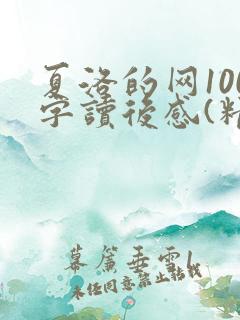 夏洛的网100
字讀後感(精
幕簾垂雪
未经同意禁止转载